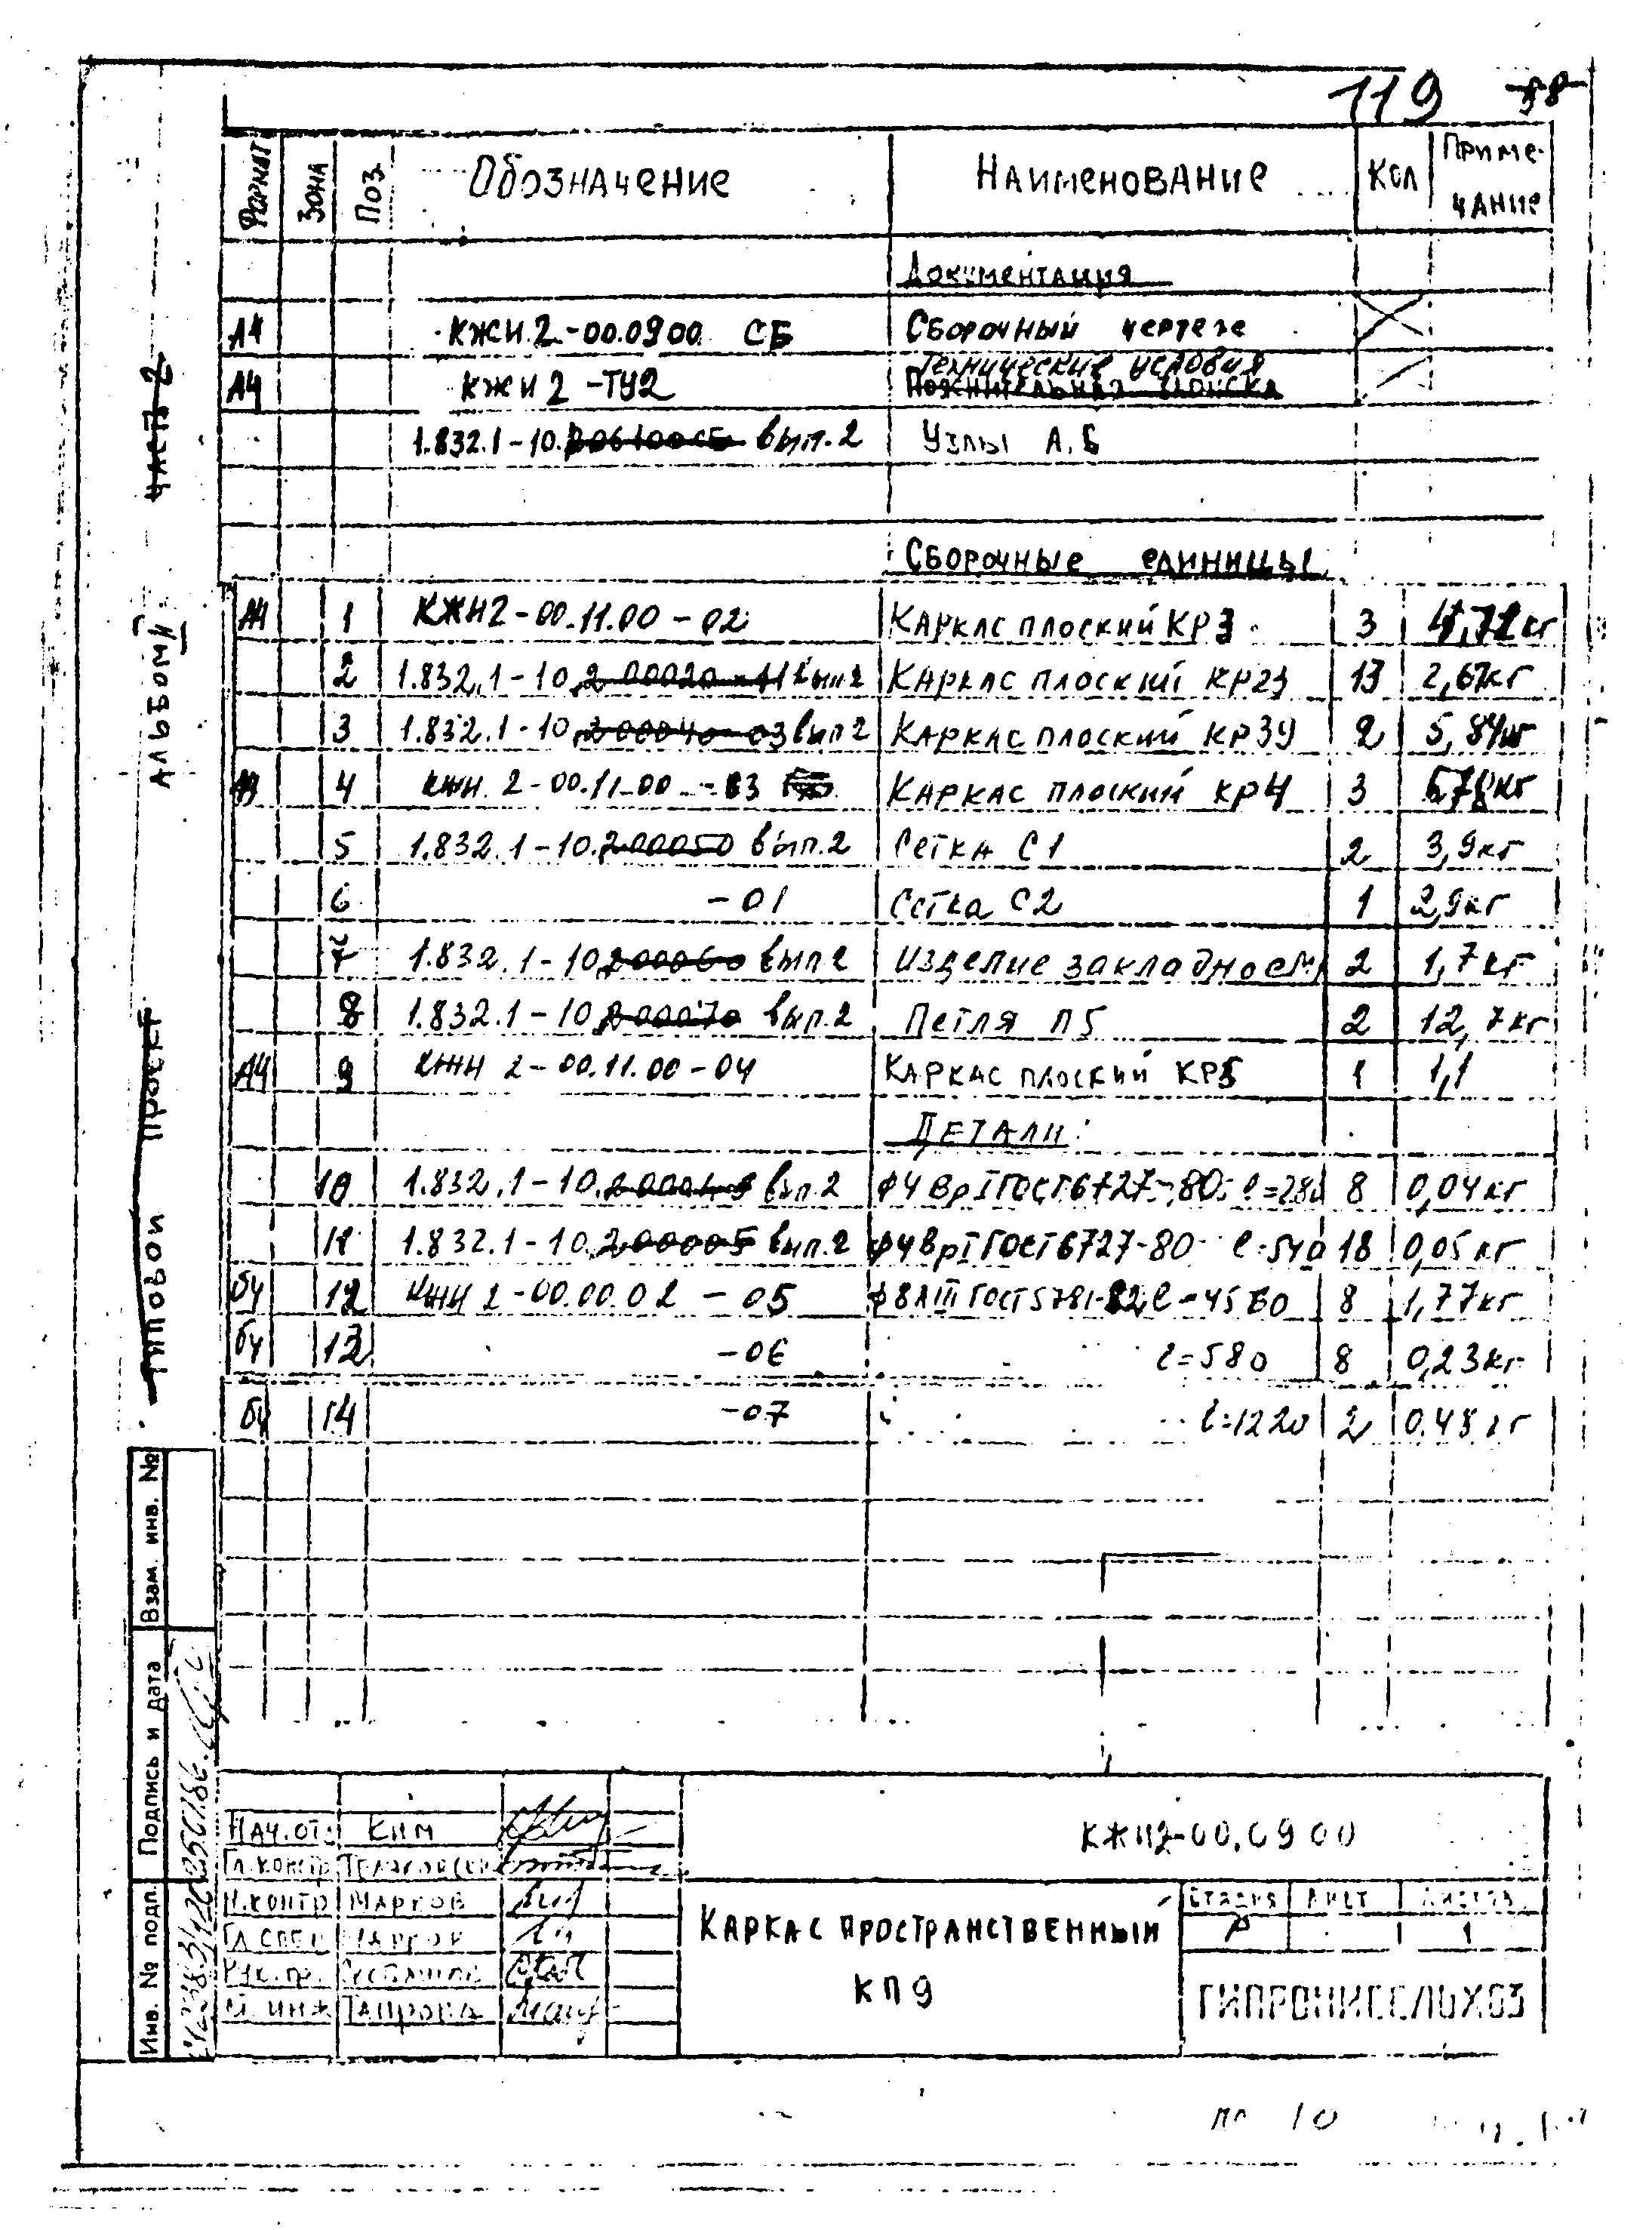 119 38
Формат Зона Поз. Обозначение Наименование Кол Примечание
Документация
А4 КЖИ.2-00.0900 СБ Сборочный чертеж
Технические условия
А4 КЖИ 2-ТУ2 Пояснительная записка
1.832.1-10. вып.2 Узлы А,Б
Сборочные единицы
А4 1 КЖИ2-00.11.00-02 Каркас плоский КР3 3 4,72кг
2 1.832.1-10. вып.2 Каркас плоский КР23 13 2,67кг
3 1.832.1-10. вып.2 Каркас плоский КР39 2 5,84кг
4 КЖИ 2-00.11.00-03 Каркас плоский КР4 3
5 1.832.1-10.200050 вып.2 Сетка С1 2 3,9кг
6 -01 Сетка С2 1 2,9кг
7 1.832.1-10.200060 вып.2 Изделие закладное М1 2 1,7кг
8 1.832.1-10.200070 вып.2 Петля П5 2 12,7кг
А4 9 КЖИ 2-00.11.00-04 Каркас плоский КР5 1 1,1
Детали:
10 1.832.1-10. вып.2 ф4ВрI ГОСТ6727-80 ℓ=280 8 0,04кг
11 1.832.1-10.200005 вып.2 ф4ВрI ГОСТ6727-80 ℓ=540 18 0,05кг
бч 12 КЖИ 2-00.00.02-05 ф8АIII ГОСТ5781-82 ℓ=4560 8 1,77кг
бч 13 -06 ℓ=580 8 0,23кг
бч 14 -07 ℓ=1220 2 0.48кг
Типовой проект Альбом часть 2
Взам. инв. №
Подпись и дата
Инв. № подл.
Нач.отд Ким
КЖИ2-00.0900
Гл.констр
Н.контр Марков
Гл.спец Марков
Рук.пр.
Каркас пространственный
КП9
Стадия Лист Листов
Р 1
ГИПРОНИСЕЛЬХОЗ
10